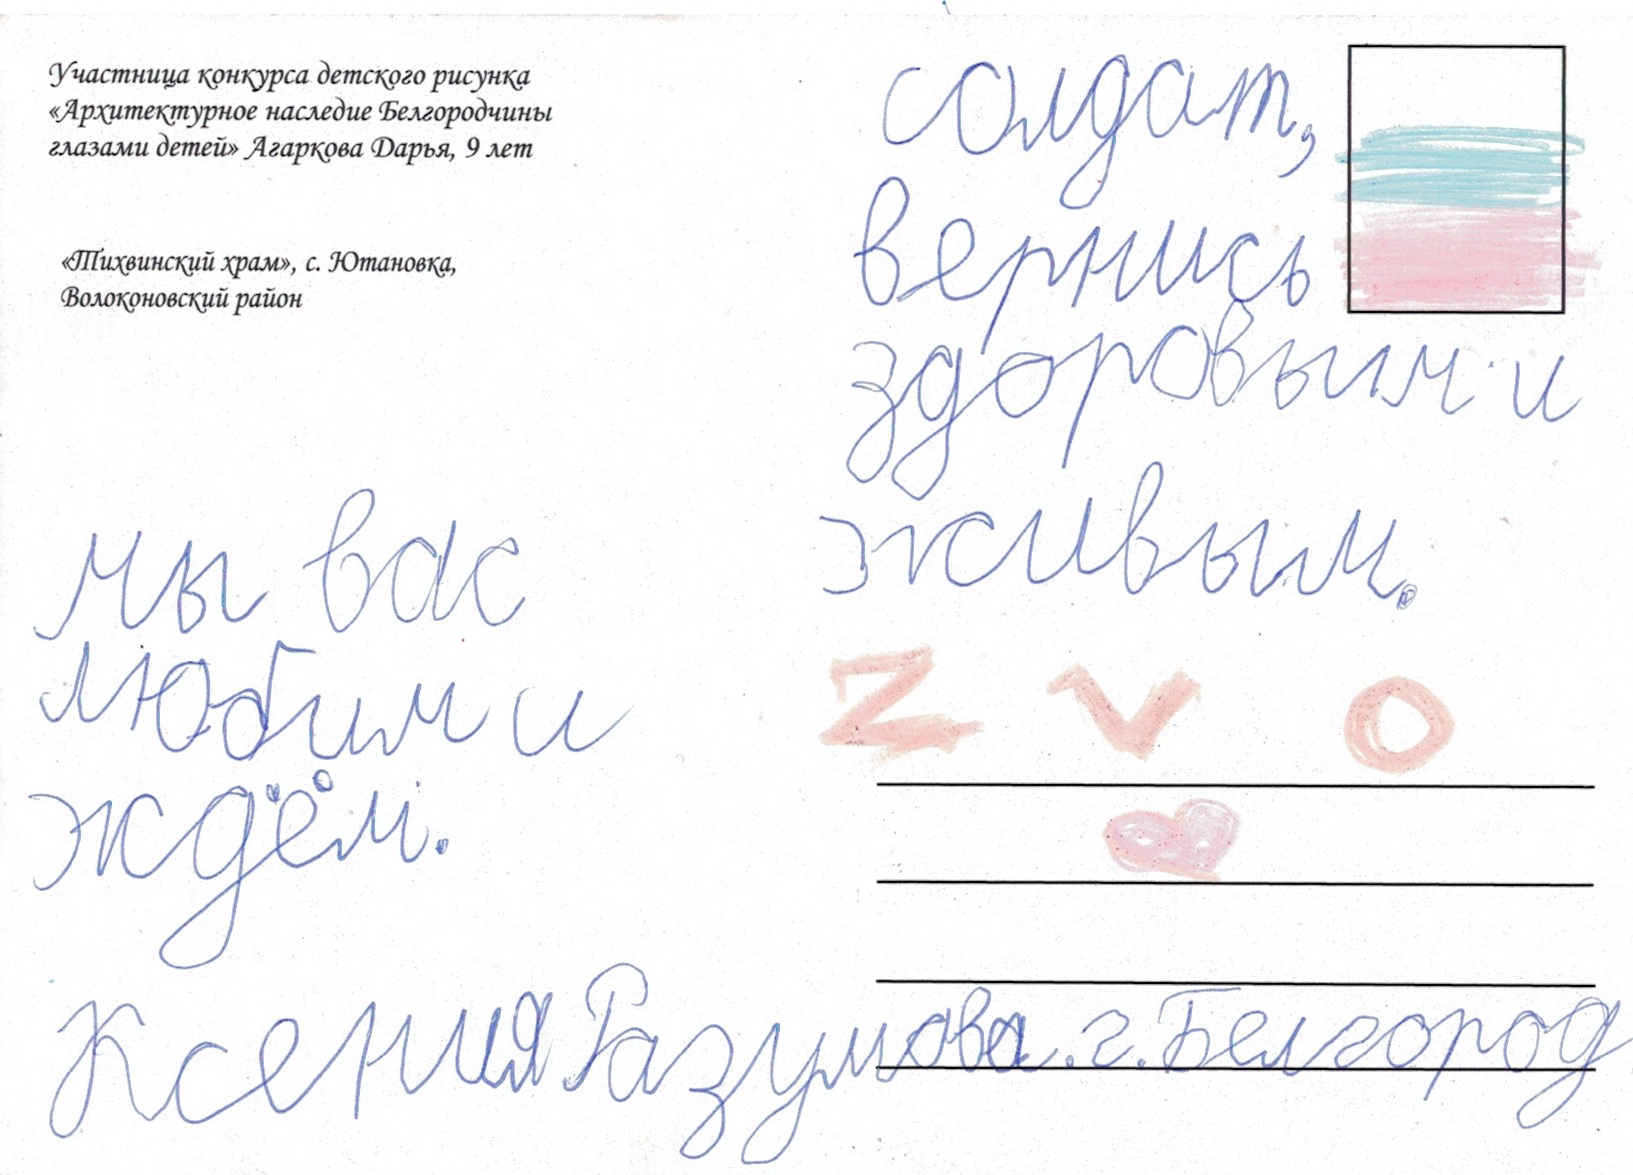 Участница конкурса детского рисунка
«Архитектурное наследие Белгородчины
глазами детей» Агаркова Дарья, 9 лет
«Тихвинский храм», с. Ютановка,
Волоконовский район
солдат,
вернись
здоровым и
живым.
Z V O
мы вас
любим и
ждём.
Ксения Разумова. г. Белгород